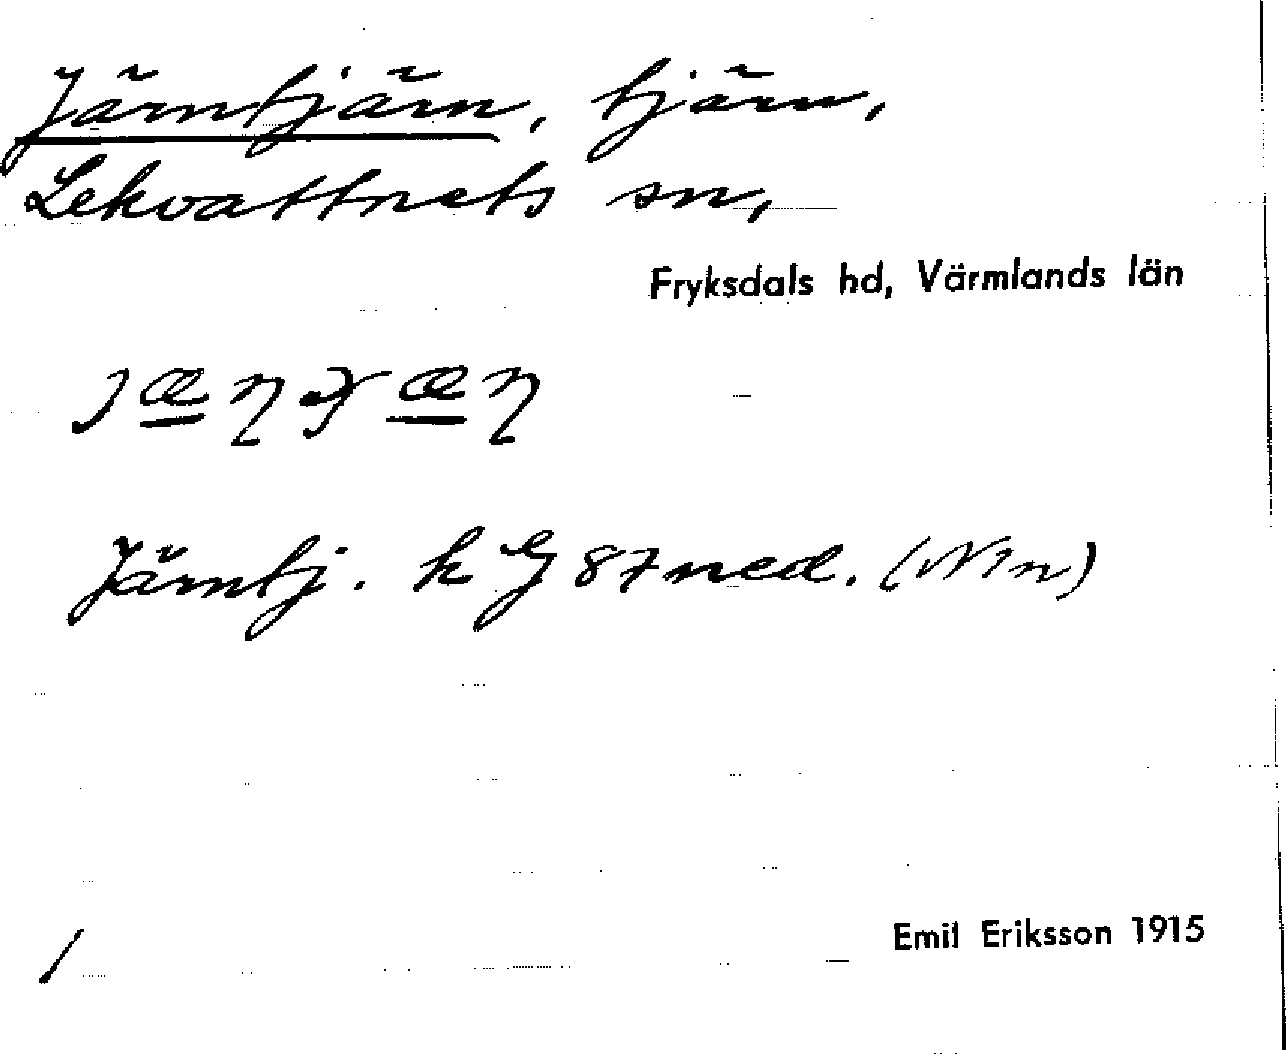 Järntjärn, tjärn,
Lekvattnets sn,
Fryksdals hd, Värmlands län
Järntj. k G 87 ned. (N1n)
/
Emil Eriksson 1915